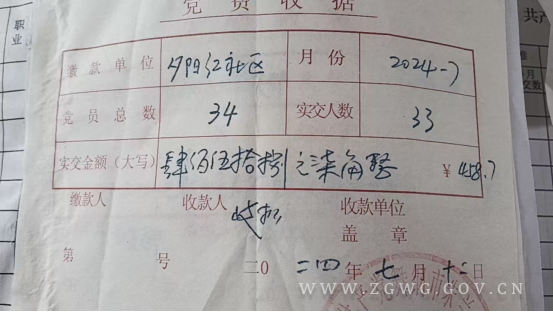 党费收据
缴款单位 夕阳红社区 月份 2024-7
党员总数 34 实交人数 33
实交金额（大写） 肆佰伍拾捌元柒角整 ¥458.7
缴款人 收款人 收款单位
盖章
第 号 二0二四年七月十二日
WWW.ZGWG.GOV.CN
职业
共产